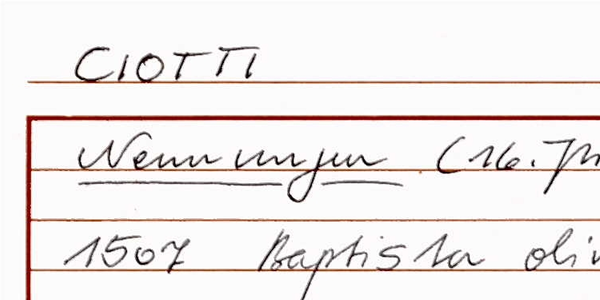 CIOTTI
Nennungen (16. Jh
1507 Baptista oli